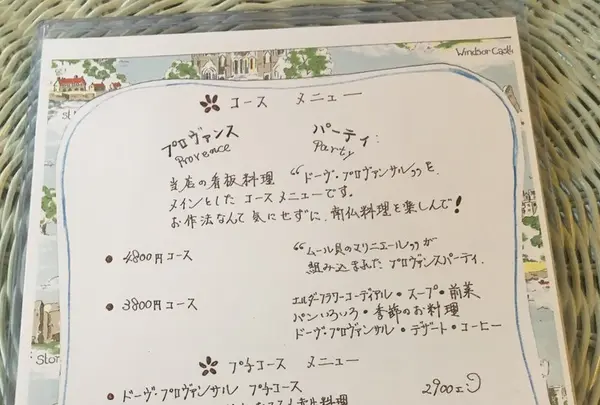 Windsor Castl
コース メニュー
プロヴァンス パーティ:
Provence Party
当店の看板料理 “ドーヴ・プロヴァンサル”を、
メインとした コース メニューです。
お作法なんて 気にせずに、南仏料理を楽しんで!
• 4800円 コース “ムール貝のマリニエール”が
組み込まれた プロヴァンスパーティ.
• 3800円 コース エルダーフラワーコーディアル・スープ・前菜
パンいろいろ・季節のお料理
ドーヴ・プロヴァンサル・デザート・コーヒー
Ston
プチコース メニュー
• ドーヴ・プロヴァンサル プチコース 2900